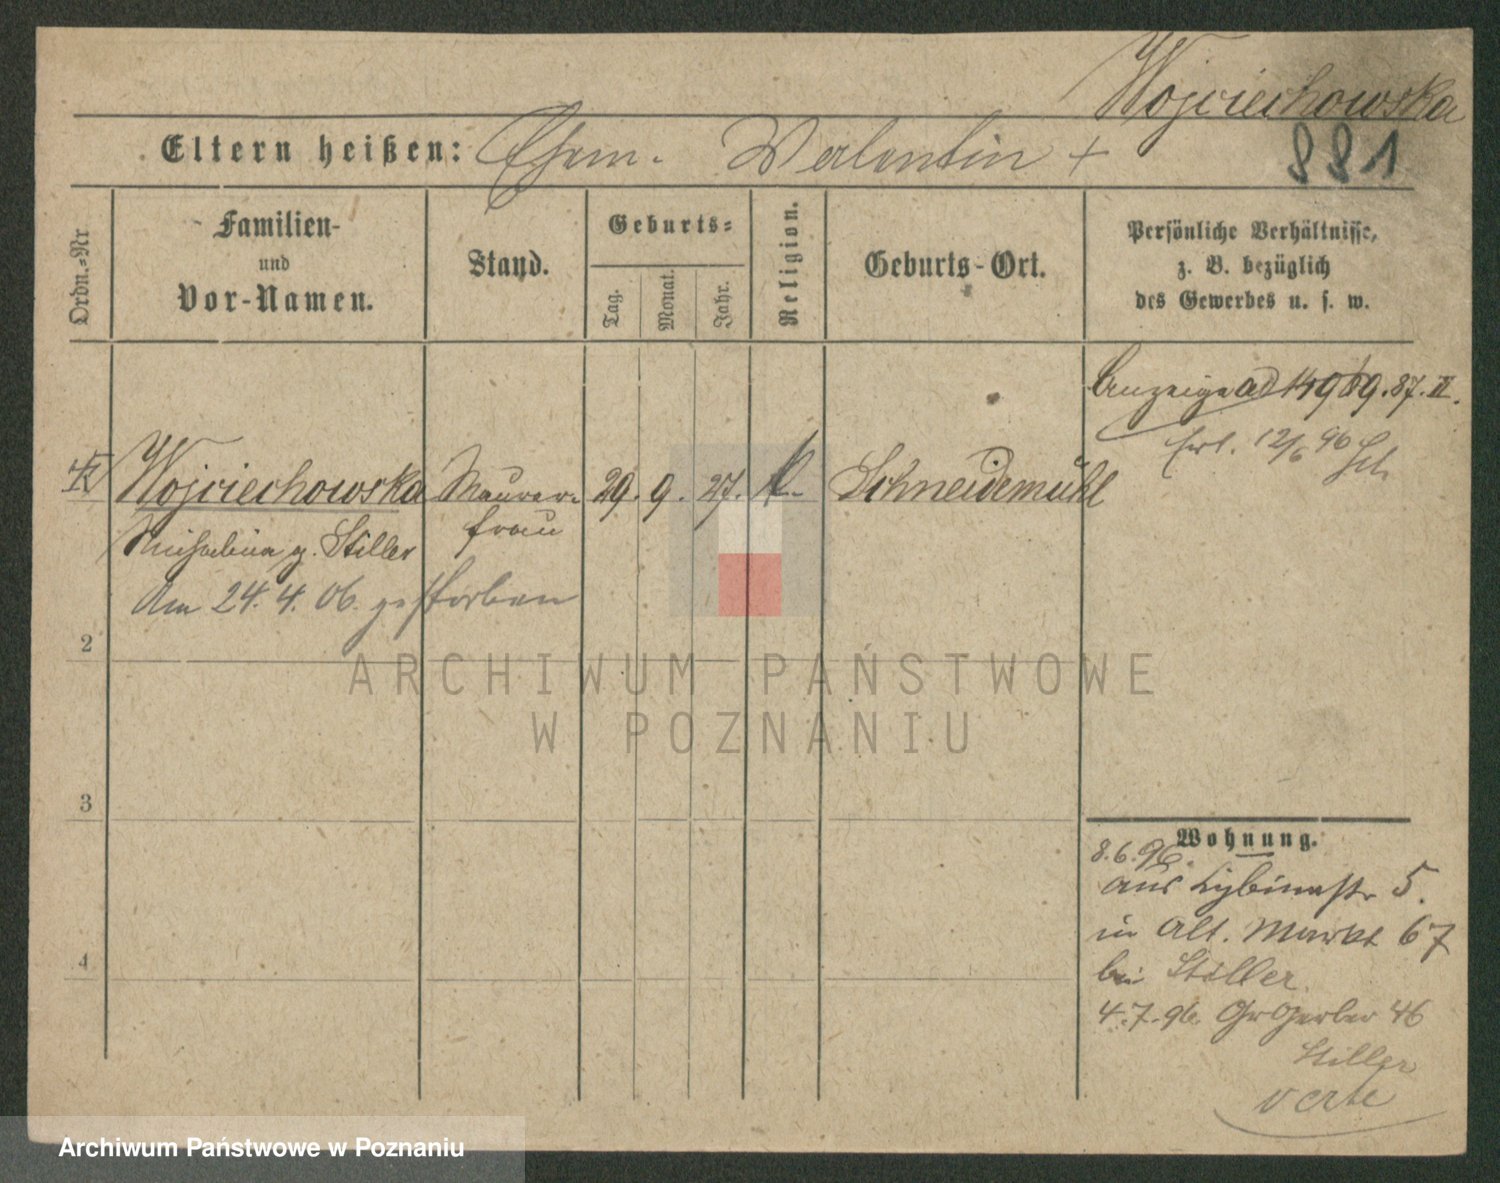 Wojciechowska
Eltern heißen: Ehem. Valentin +
881
Ordn.=Nr
Familien-
und
Vor-Namen.
Stand.
Geburts=
Tag.
Monat.
Jahr.
Religion.
Geburts-Ort.
Persönliche Verhältnisse,
z. B. bezüglich
des Gewerbes u. s. w.
Anzeige ad
Erl. 12/6 96
Wojciechowska Maurer- 29. 9. 27. k. Schneidemühl
frau
g. Stiller
Am 24. 4. 06. gestorben
2
3
4
Wohnung.
8.6.96.
aus Cybinastr 5.
in Alt. Markt 67
bei Stiller.
4.7.96. Gr Gerber 46
Stiller
verte
ARCHIWUM PAŃSTWOWE
W POZNANIU
Archiwum Państwowe w Poznaniu